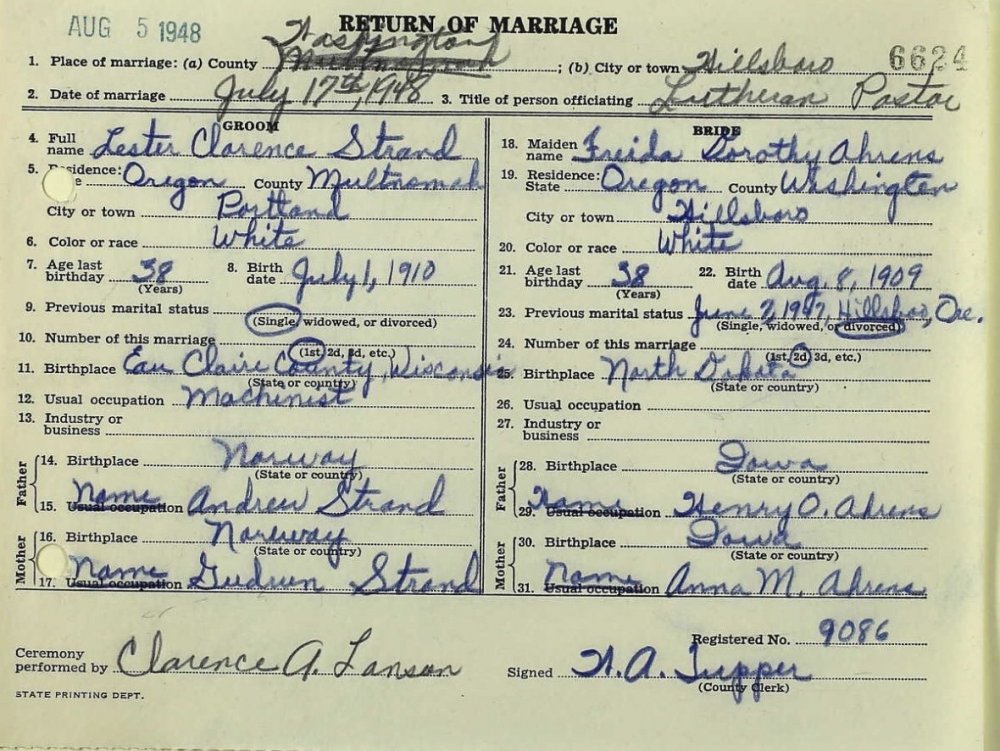 AUG 5 1948
RETURN OF MARRIAGE
Washington
1. Place of marriage: (a) County Multnomah ; (b) City or town Hillsboro 6624
2. Date of marriage July 17th, 1948 3. Title of person officiating Lutheran Pastor
GROOM
4. Full name Lester Clarence Strand
5. Residence: Oregon County Multnomah
City or town Portland
6. Color or race White
7. Age last birthday 38 (Years) 8. Birth date July 1, 1910
9. Previous marital status
(Single, widowed, or divorced)
10. Number of this marriage
(1st, 2d, 3d, etc.)
11. Birthplace Eau Claire County, Wisconsin
(State or country)
12. Usual occupation Machinist
13. Industry or business
Father
14. Birthplace Norway
(State or country)
15. Usual occupation Name Andrew Strand
Mother
16. Birthplace Norway
(State or country)
17. Usual occupation Name Gudrun Strand
BRIDE
18. Maiden name Freida Dorothy Ahrens
19. Residence: State Oregon County Washington
City or town Hillsboro
20. Color or race White
21. Age last birthday 38 (Years) 22. Birth date Aug. 8, 1909
23. Previous marital status June 2, 1947, Hillsboro, Ore.
(Single, widowed, or divorced)
24. Number of this marriage
(1st, 2d, 3d, etc.)
25. Birthplace North Dakota
(State or country)
26. Usual occupation
27. Industry or business
Father
28. Birthplace Iowa
(State or country)
29. Usual occupation Name Henry O. Ahrens
Mother
30. Birthplace Iowa
(State or country)
31. Usual occupation Name Anna M. Ahrens
Registered No. 9086
Ceremony performed by Clarence A. Lanson
Signed H. A. Tupper
(County Clerk)
STATE PRINTING DEPT.